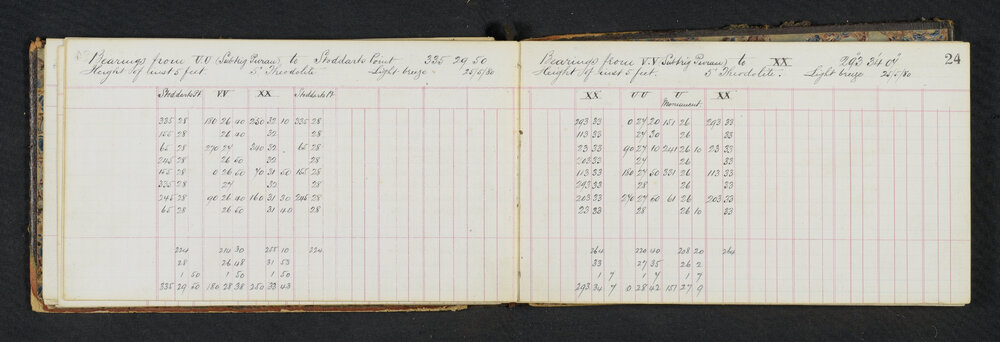 Bearings from V.V (Subtrig Purau) to Stoddarts Point 335 29 50
Height of inst 5 feet. 5" Theodolite. Light breeze. 25/5/80
Stoddarts Pt. V.V XX Stoddarts Pt.
335 28 180 26 40 250 32 10 335 28
155 28 26 40 32 28
65 28 270 27 340 32 65 28
245 28 26 50 32 28
155 28 0 26 50 70 31 50 155 28
335 28 27 32 28
245 28 90 26 40 160 31 30 245 28
65 28 26 50 31 40 28
224 214 30 255 10 224
28 26 48 31 53
1 50 1 50 1 50
335 29 50 180 28 38 250 33 43
Bearings from V.V (Subtrig Purau) to XX 293 34 07 24
Height of inst 5 feet. 5" Theodolite. Light breeze 25/5/80
XX UU U XX
Monument
293 33 0 27 20 151 26 293 33
113 33 27 30 26 33
23 33 90 27 10 241 26 10 23 33
203 33 27 26 33
113 33 180 27 50 331 26 113 33
293 33 28 26 33
203 33 270 27 50 61 26 203 33
23 33 28 26 10 33
264 220 40 208 20 264
33 27 35 26 2
1 7 1 7 1 7
293 34 7 0 28 42 151 27 9